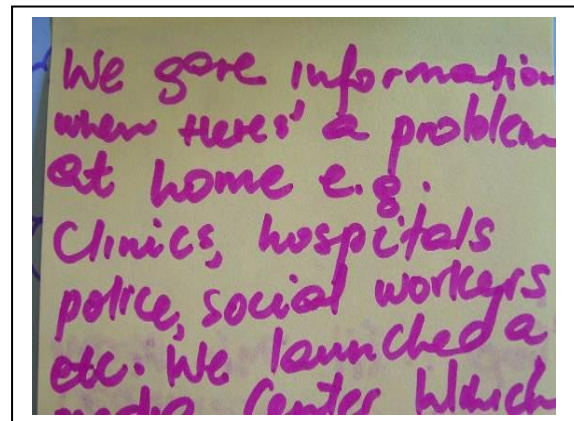 We gave information
when theres' a problem
at home e.g.
Clinics, hospitals
police, social workers
etc. We launched a
media Center which